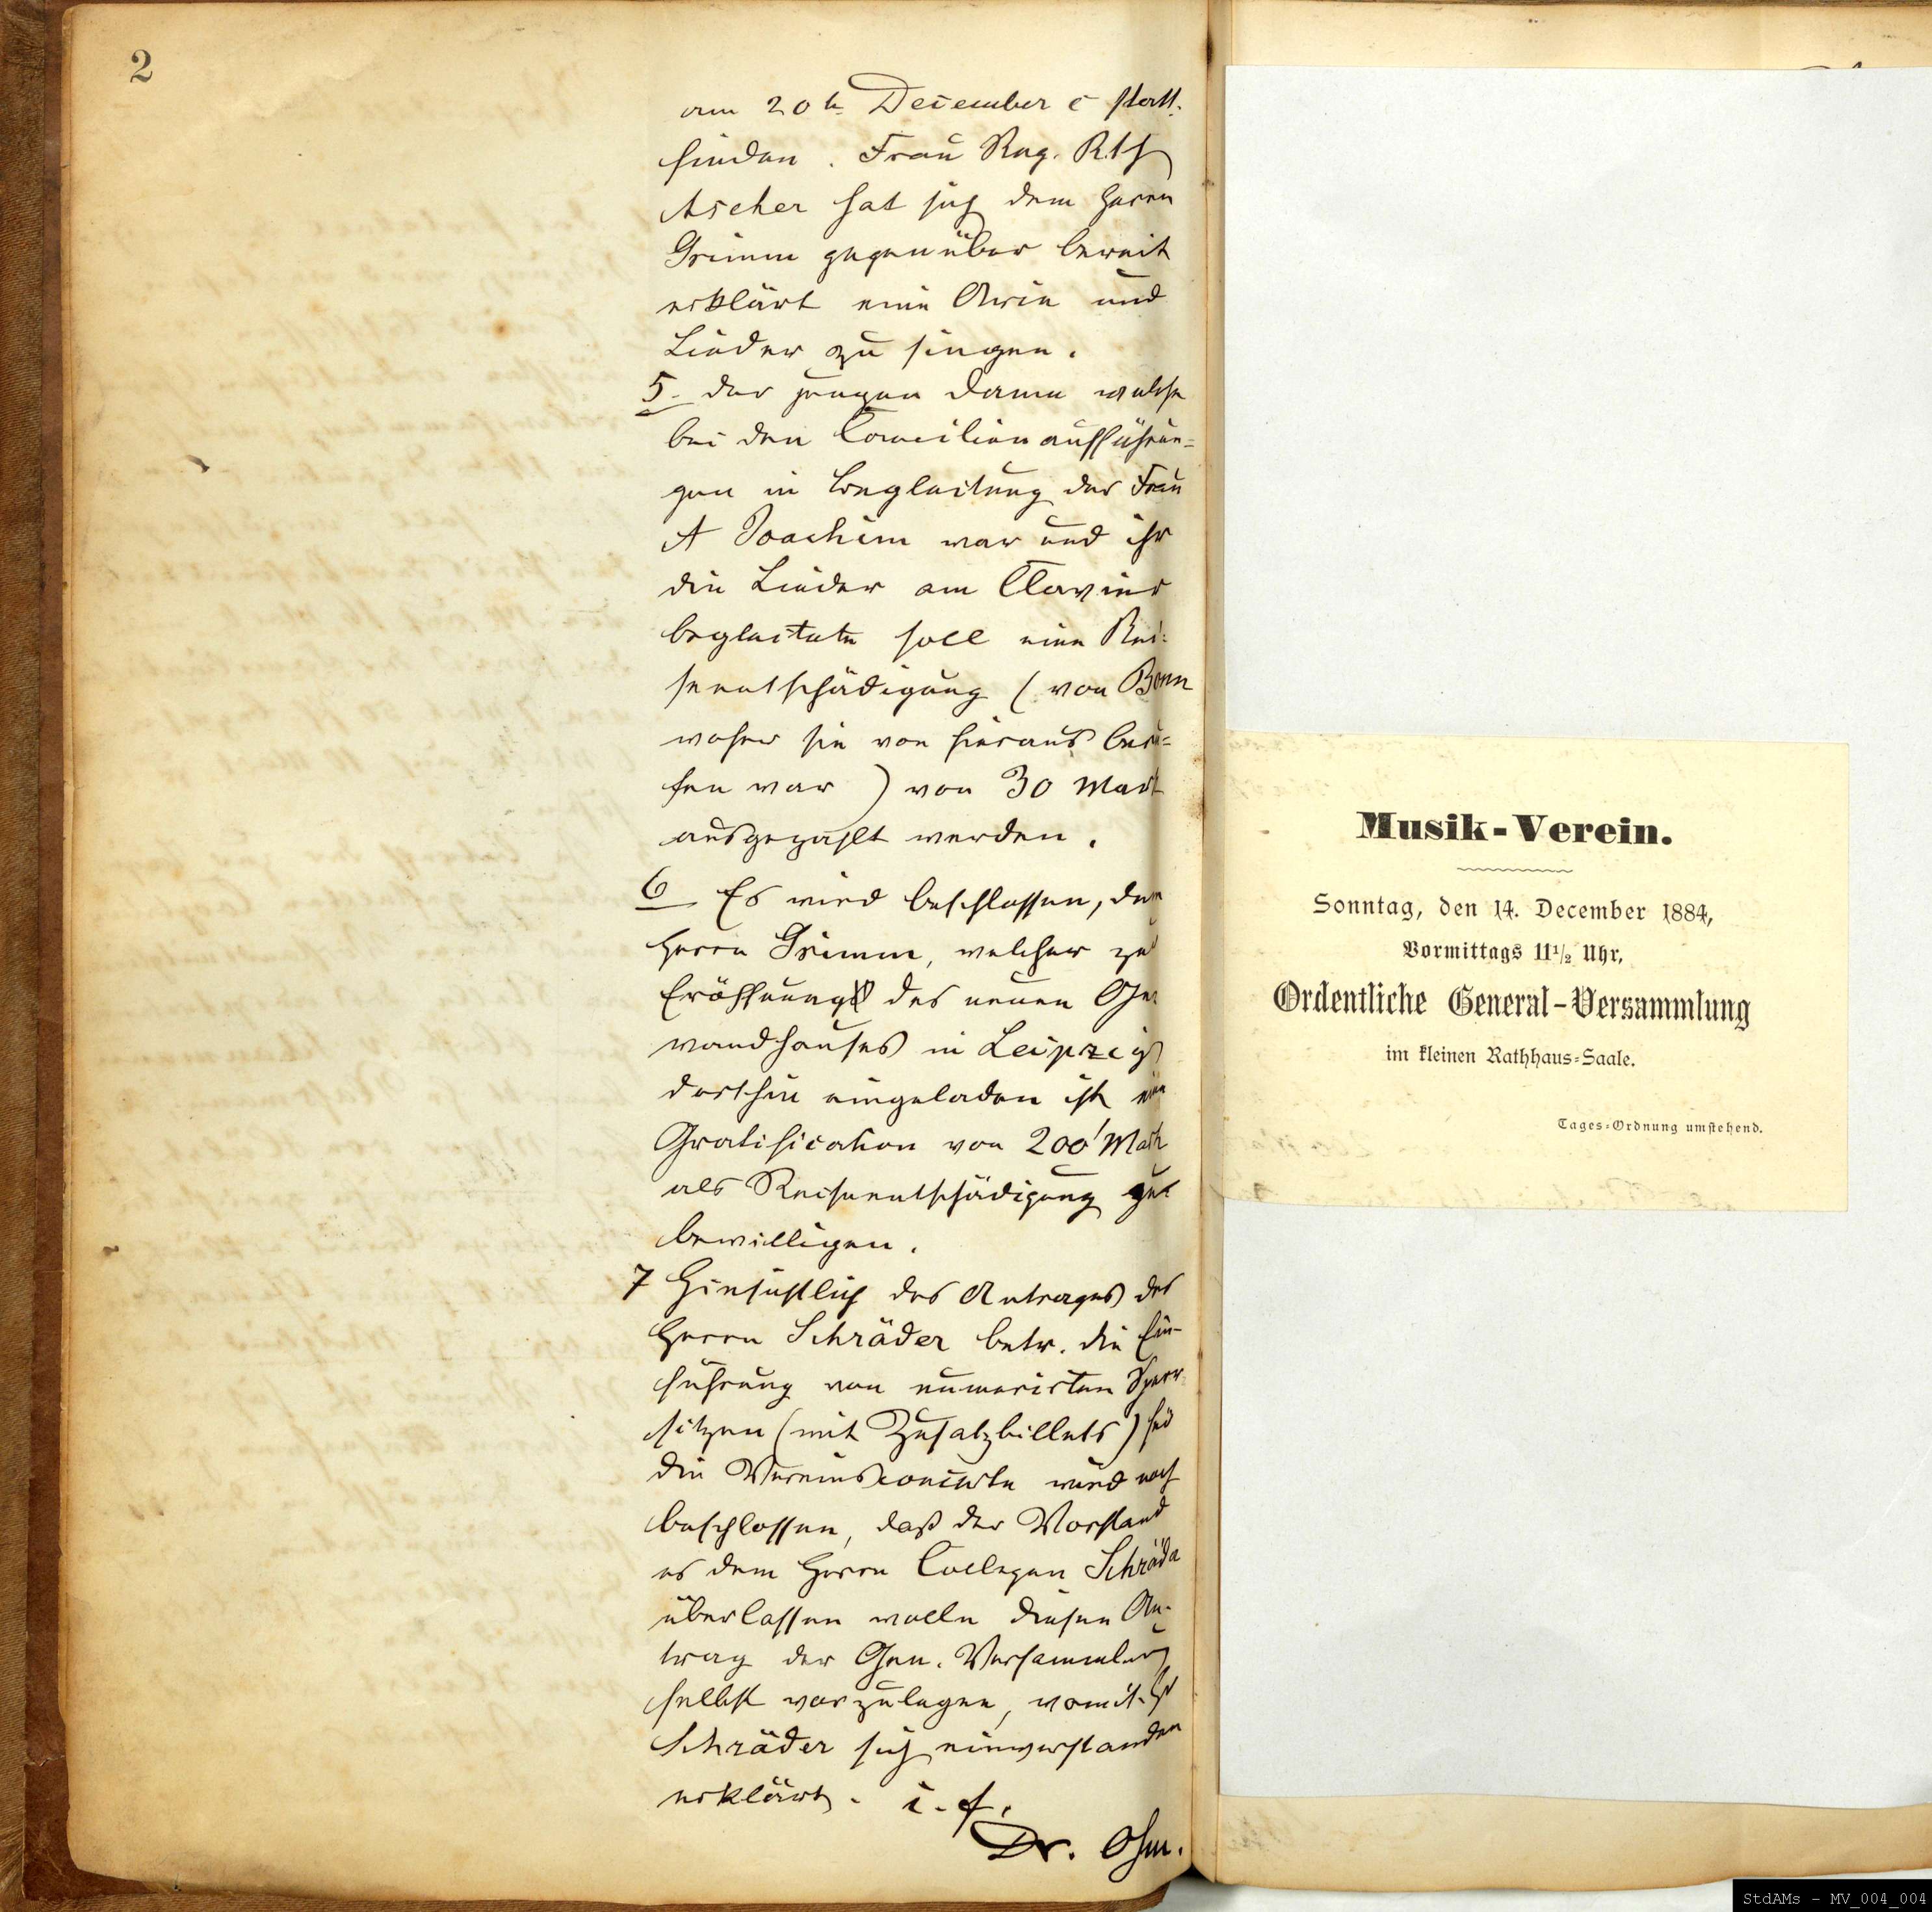 2
am 20t. December c statt-
finden. Frau Reg. Rth
Ascher hat sich dem Herrn
Grimm gegenüber bereit
erklärt eine Arie und
Lieder zu singen.
5. der jungen Dame welche
bei den Caecilienaufführun=
gen in Begleitung der Frau
A Joachim war und ihr
die Lieder am Clavier
begleitete soll eine Rei-
seentschädigung (von Bonn
woher sie von hieraus beru=
fen war) von 30 Mark
ausgezahlt werden.
6 Es wird beschlossen, dem
Herrn Grimm, welcher zur
Eröffnung des neuen Ge
wandhauses in Leipzig
dorthin eingeladen ist eine
Gratification von 200 Mark
als Reiseentschädigung zu
bewilligen.
7 Hinsichtlich des Antrages des
Herrn Schräder betr. die Ein-
führung von numerirten Sperr
sitzen (mit Zusatzbillets) für
die Vereinsconcerte wird noch
beschlossen, daß der Vorstand
es dem Herrn Collegen Schräder
überlassen wolle diesen An-
trag der Gen. Versammlung
selbst vorzulegen, womit H
Schräder sich einverstanden
erklärt. i. f.
Dr. Ohm.
Musik-Verein.
Sonntag, den 14. December 1884,
Vormittags 11 1/2 Uhr,
Ordentliche General-Versammlung
im kleinen Rathhaus-Saale.
Tages-Ordnung umstehend.
StdAMs - MV_004_004